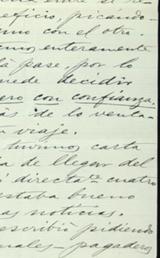 eficio, picándo-
mo con el otro.
emos enteramente
la pase, por lo
uede decidir
ero con confianza,
ás de lo venta-
viaje.
tuvimos carta
a de llegar del
directa cuatro
estaba bueno
as noticias.
escribió pidiendo
nales - pagaderos